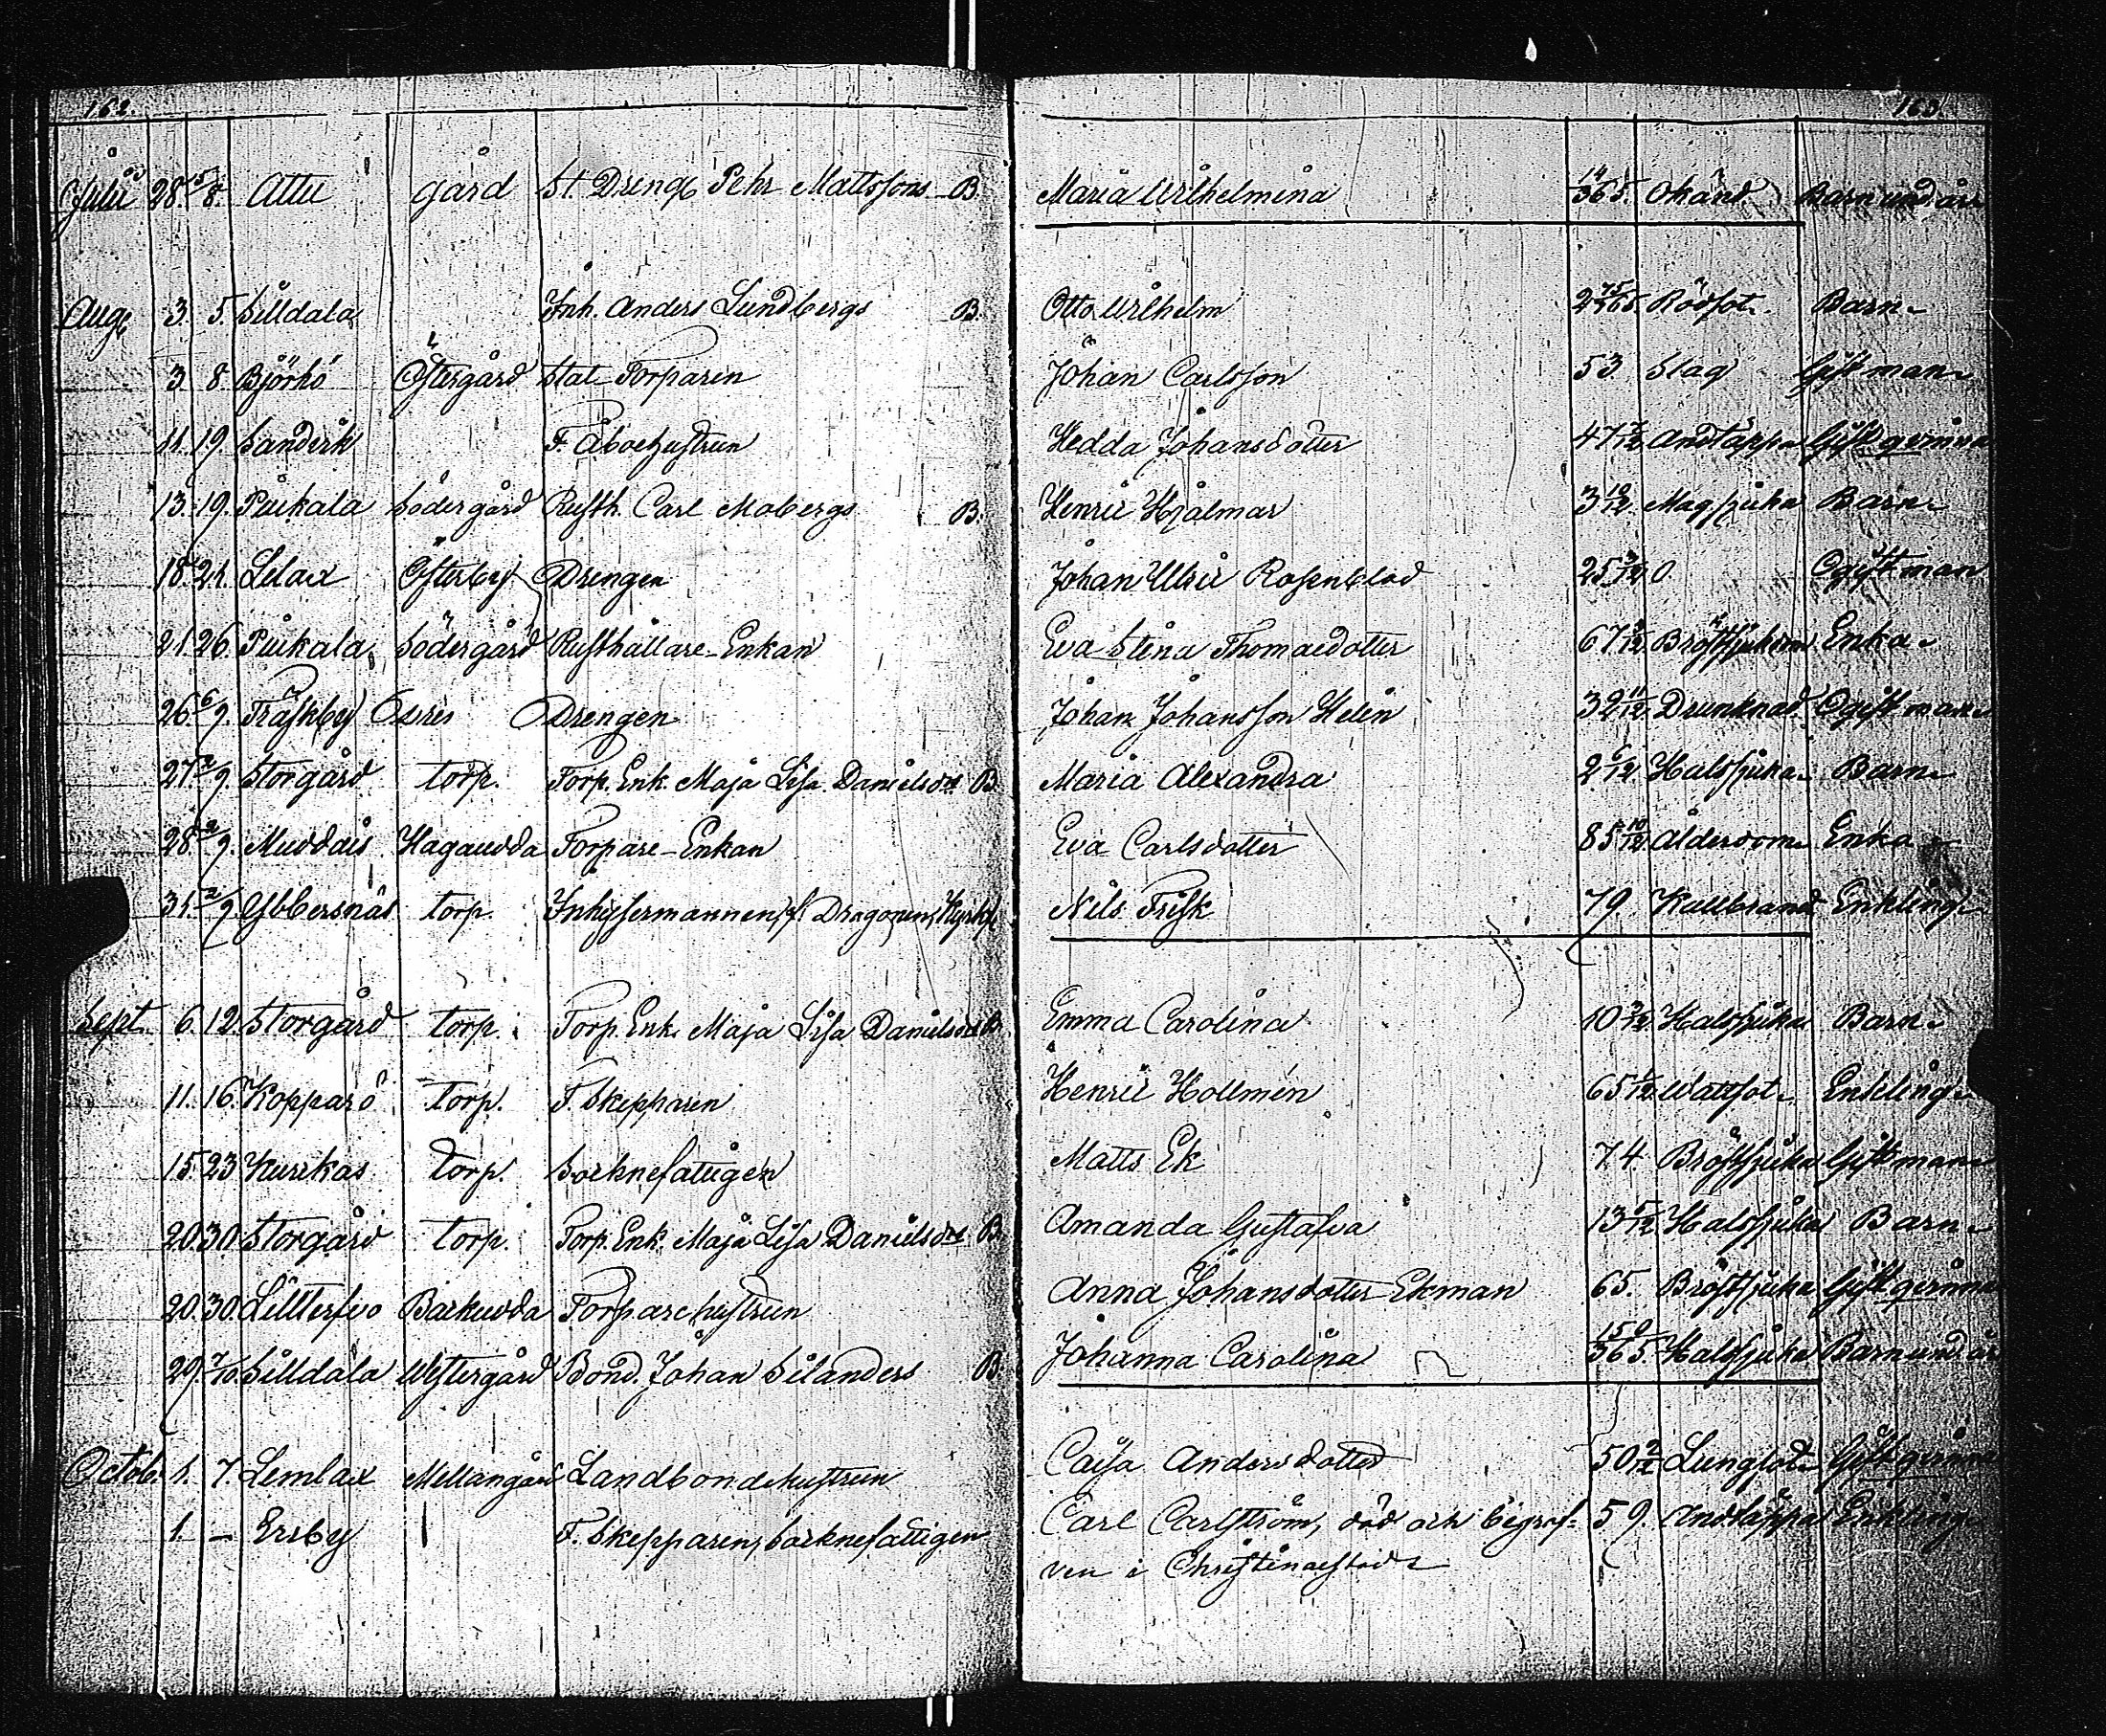 162. 163.
Julii 28. 5/8. Attu gård St. Dreng Pehr Mattssons B. Maria Wilhelmina 14/365. Okänd Barn und. år
Aug. 3. 5. Silldala Inh. Anders Lundbergs B. Otto Wilhelm 2 75/365. Rödsot. Barn
3. 8. Björkö Östergård Stat-Torparen Johan Carlsson 53. Slag Gift man
11. 19. Sandvik F. Åboehustrun Hedda Johansdotter 47 7/12 Andtäppa Gift qvinna
13. 19. Pükala Södergård Rusth. Carl Mobergs B. Henric Hjalmar 3 10/12. Magsjuka Barn
18. 21. Lelax Österby Drengen Johan Ulric Rosenblad 25 3/12 O. Ogift man
21. 26. Pükala Södergård Rusthållare-Enkan Eva Stina Thomasdotter 67 8/12. Bröstsjukdom Enka
26. 6/9. Träskby Drengen Johan Johansson Helin 32 11/12 Drunknad Ogift man
27. 2/9. Storgård torp. Torp. Enk. Maja Lisa Danielsdr B. Maria Alexandra 2 6/12 Halssjuka Barn
28. 2/9. Muddais Hagaudda Torpare-Enkan Eva Carlsdotter 85 10/12 Ålderdom Enka
31. 2/9. Ybbersnäs torp. Inhysesmannen, f. Dragonen, Nils Frisk 79. Kallbrand Enkling
Sept. 6. 12. Storgård torp. Torp. Enk. Maja Lisa Danielsdr B. Emma Carolina 10 3/12. Halssjuka Barn
11. 16. Kopparö torp. F. Skepparen Henric Hollmén 65 1/12. Wattsot Enkling
15. 23 Kurkas Torp. Socknefattigen Matts Ek 74. Bröstsjuka Gift man
20. 30. Storgård torp. Torp. Enk. Maja Lisa Danielsdr B. Amanda Gustafva 13 5/12. Halssjuka Barn
20. 30. Backudda Torparehustrun Anna Johansdotter Ekman 65. Bröstsjuka Gift qvinna
29. 7/10. Silldala Westergård Bond. Johan Silanders B. Johanna Carolina 150/365. Halssjuka Barn und. år
Octob. 1. 7. Lemlax Mellangård Landbondehustrun Caisa Andersdotter 50 2/12 Lungsot Gift qvinna
1. – Ersby F. Skepparen, Socknefattigen Carl Carlström, död och begraf- 59. Andtäppa Enkling
ven i Christinæstad